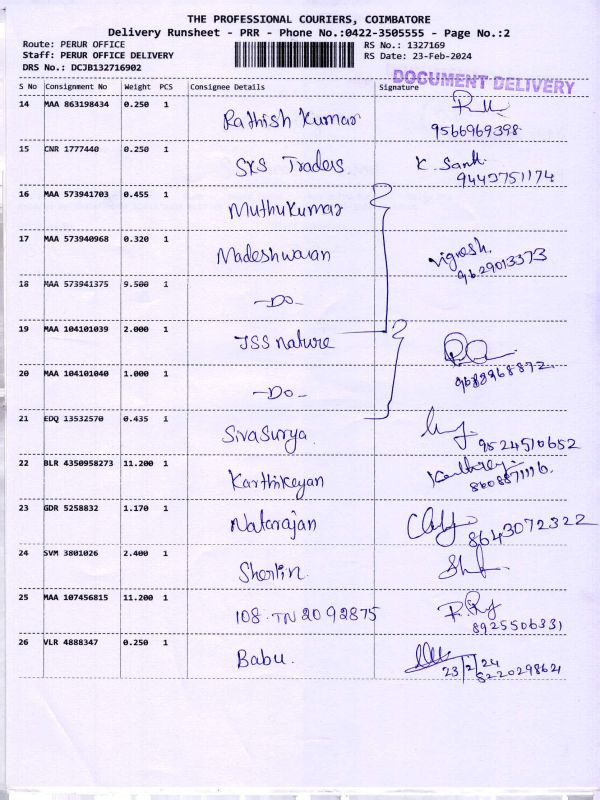 THE PROFESSIONAL COURIERS, COIMBATORE
Delivery Runsheet - PRR - Phone No.:0422-3505555 - Page No.:2
Route: PERUR OFFICE RS No.: 1327169
Staff: PERUR OFFICE DELIVERY RS Date: 23-Feb-2024
DRS No.: DCJB132716902
DOCUMENT DELIVERY
S No Consignment No Weight PCS Consignee Details Signature
14 MAA 863198434 0.250 1 Rathish Kumar
9566969398
15 CNR 1777440 0.250 1 SKS Traders K. Santh.
9442751174
16 MAA 573941703 0.455 1 Muthukumar
17 MAA 573940968 0.320 1 Madeshwaran Vignesh.
9629013373
18 MAA 573941375 9.500 1 -Do-
19 MAA 104101039 2.000 1 JSS nature
20 MAA 104101040 1.000 1 -Do-
9688968872
21 EDQ 13532570 0.435 1 Sivasurya
9524510652
22 BLR 4350958273 11.200 1 Karthikeyan
23 GDR 5258832 1.170 1 Natarajan
8643072322
24 SVM 3801026 2.400 1 Sherlin.
25 MAA 107456815 11.200 1 108.TN 20 92875
8925506331
26 VLR 4888347 0.250 1 Babu.
23/2/24